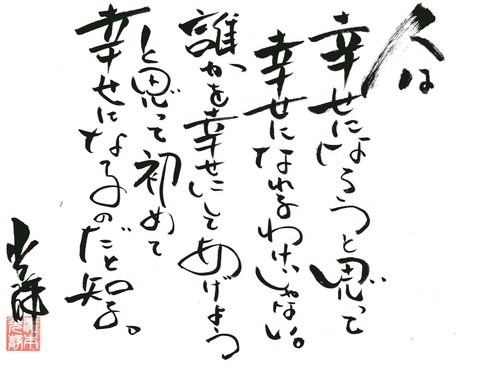 人は
幸せになろうと思って
幸せになれるわけじゃない。
誰かを幸せにしてあげよう
と思って初めて
幸せになるのだと知る。